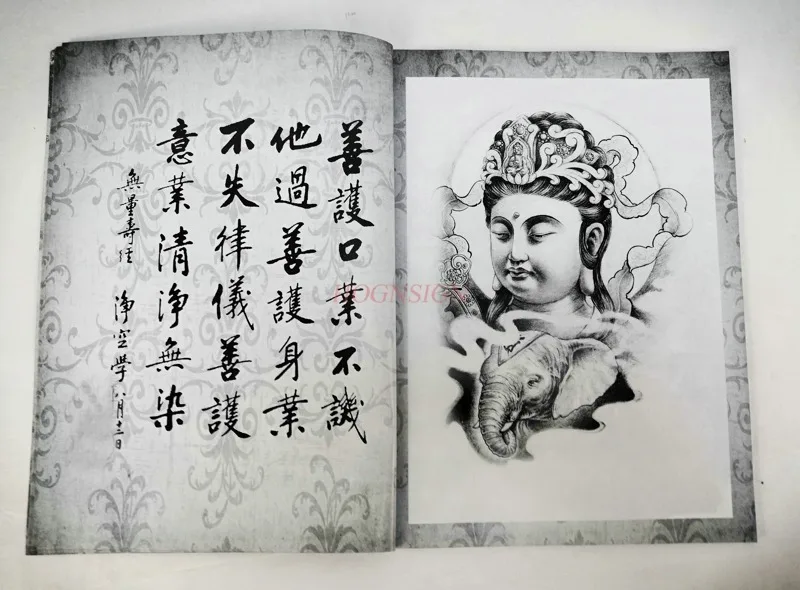 善護口業不譏
他過善護身業
不失律儀善護
意業清淨無染
無量壽经 淨空學 八月十二日